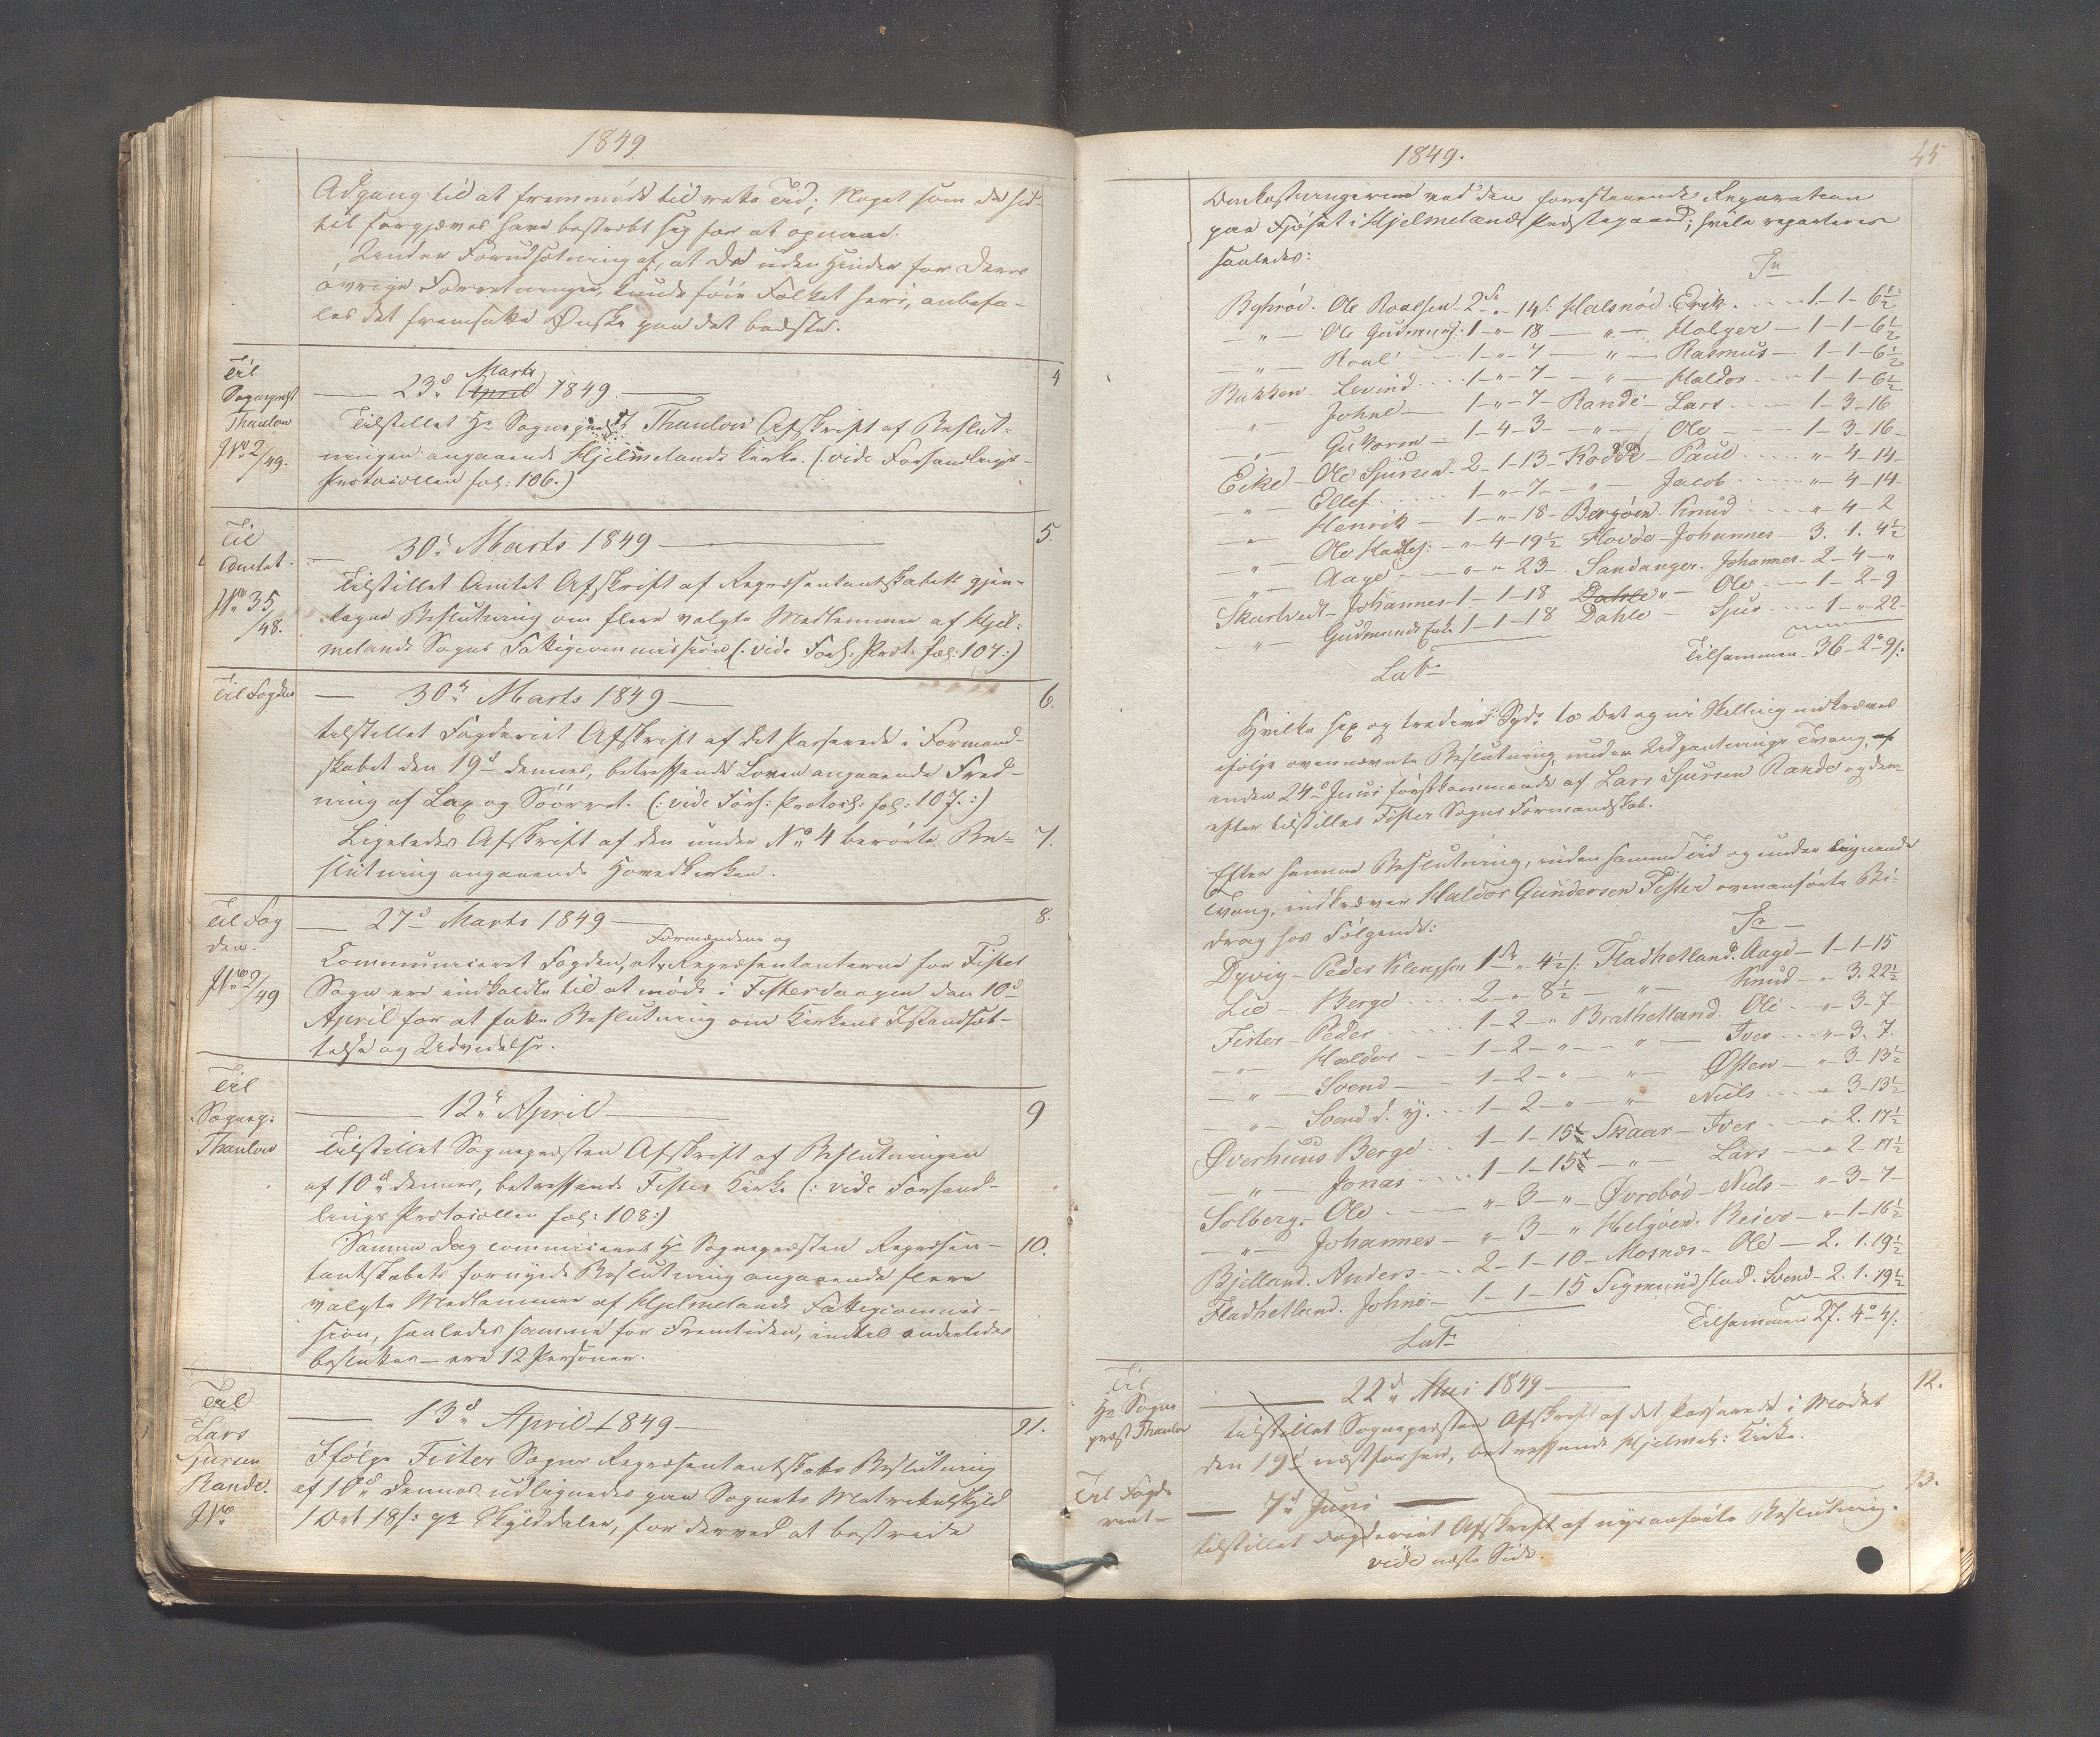 1849
Adgang til at fremmøde til rette Tid; Noget som de hid-
til forgjæves have bestræbt sig for at opnaae.
Under Forudsætning af, at De uden Hinder for Deres
øvrige Forretninger, kunde föie Folket heri, anbefa-
les det fremsatte Ønske paa det bedste.
Til
Sogneprest
Thaulow
J.No 2/49.
4
Marts
23d April 1849.
Tilstillet Hr Sogneprest Thaulow Afskrift af Beslut-
ningen angaaende Hjelmelands Kirke. (: vide Forhandlings-
Protocollen fol: 106.)
Til
Amtet.
JNo 35/48.
5.
30d Marts 1849
Tilstillet Amtet Afskrift af Repræsentantskabets gjen-
tagne Beslutning om flere valgte Medlemmer af Hjel-
melands Sogns Fattigcommission (: vide Forh: Prot: fol: 107:)
Til Fogden
6.
30d Marts 1849
tilstillet Fogderiet Afskrift af det Passerede i Formand-
skabet den 19d dennes, betreffende Loven angaaende Fred-
ning af Lax og Söörret. (: vide Forh: Protocl: fol: 107.:)
Ligeledes Afskrift af den under No 4 berörte Be-
7.
slutning angaaende Hovedkirken.
Til Fog
den.
JNo 2/49
8.
27d Marts 1849
Formændene og
Communiceret Fogden, at Repræsentanterne for Fister
Sogn ere indkaldte til at møde i Fistervaagen den 10d
April for at fatte Beslutning om Kirkens Istandsæt-
telse og Udvidelse.
Til
Sognep:
Thaulow
9
12d April
Tilstillet Sognepresten Afskrift af Beslutningen
af 10d dennes, betreffende Fister Kirke (: vide Forhand-
lings Protocollen fol: 108:)
Samme Dag communiceret Hr Sognepresten Repræsen-
10.
tantskabets fornyede Beslutning angaaende flere
valgte Medlemmer af Hjelmelands Fattigcommis-
sion, saaledes samme for Fremtiden, indtil anderledes
besluttes - ere 12 Personer.
Til
Lars
Sjursen
Rande.
JNo
11.
13d April 1849
Ifölge Fister Sogns Repræsentantskabs Beslutning
af 10d dennes udlignedes paa Sognets Matrikulskyld
1 Ort 18 s: pr Skylddaler, for derved at bestride
1849.
45
Omkostningerne ved den forestaaende Reparation
paa Fjöset i Hjelmelands Prestegaard; hvilke reparteres
saaledes:
Tr
Byhrød. Ole Roalsen 2 Sp - " - 14 s: Halsnöe. Erik. - 1 - 1 - 6½
- " - Ole Gudmuns: 1 - " - 18 - " - Holger - 1 - 1 - 6½
- " - Roal - 1 - " - 7 - " - Rasmus - 1 - 1 - 6½
Bakken - Levind - 1 - " - 7 - " - Haldor - 1 - 1 - 6½
" - Johne - 1 - " - 7 - Rande - Lars - 1 - 3 - 16
- " - Guttorm - 1 - 4 - 3 - " - Ole - 1 - 3 - 16
Eike - Ole Sjursen - 2 - 1 - 13 - Kodde - Paul - " - 4 - 14
- " - Ellef - 1 - " - 7 - " - Jacob - " - 4 - 14
- " - Henrik - 1 - " - 18 - Bergöen. Knud - " - 4 - 2
- " - Ole Hadlef: - " - 4 - 19½ Hovde - Johannes - 3. 1. 4½
- " - Aage - " - " - 23 - Sandanger. Johannes - 2 - 4 - "
Skartvedt - Johannes - 1 - 1 - 18 Dahle " - Ole - 1 - 2 - 9
- " - Gudmunds Enke 1 - 1 - 18 Dahle - Sjur - 1 - " - 22
Lat
Tilsammen 36 - 2 o 9 s:
Hvilke sex og tredive Spd: to Ort og ni Skilling indkræves
ifölge ovennævnte Beslutning under Udpantnings Tvang, af
inden 24d Juni førstkommende af Lars Sjursen Rande og der-
efter tilstilles Fister Sogns Formandskab.
Efter samme Beslutning, inden samme Tid og under lignende
Tvang, indkræver Haldor Gundersen Fister ovenanførte Bi-
drag hos Fölgende:
Tr
Dyvig - Peder Klemetsen 1 Sp - " - 4½ s: Fladhetland. Aage - 1 - 1 - 15
Lie - Berge - 2 - " - 8½ - " - Knud - " - 3. 22½
Fister - Peder - 1 - 2 - " Brathetland. Ole - " - 3 - 7
- " - Haldor - 1 - 2 - " - " - Iver - " - 3 - 7
- " - Svend - 1 - 2 - " - " - Østen - " - 3 - 13½
- " - Svend d. y. - 1 - 2 - " - " - Niels - " - 3 - 13½
Øverhuus Berge - 1 - 1 - 15½ Skaar - Iver - " - 2. 17½
- " - Jonas - 1 - 1 - 15½ - " - Lars - " - 2 - 17½
Solberg - Ole - " - 3 - " - Øvrebö - Niels - " - 3 - 7
- " - Johannes - " - 3 - " Helgöen. Reier - " - 1 - 16½
Bjelland. Anders - 2 - 1 - 10 - Mosnæs - Ole - 2. 1. 19½
Fladhetland. Johne - 1 - 1 - 15 Sigmundstad. Svend - 2. 1. 19½
Lat
Tilsammen 27. 4 o 4 s:
Til
Hr Sogne
prest Thaulow
12.
22d Mai 1849
tilstillet Sognepresten Afskrift af det Passerede i Mødet
den 19d næstforhen, betreffende Hjelmel: Kirke.
Til Fogde
riet
13.
7d Juni
tilstillet Fogderiet Afskrift af nysanførte Beslutning.
vide næste Side.